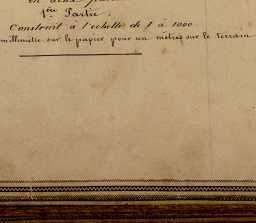 en deux
1ère Partie.
Construit à l'echelle de 1 à 1000
millimètre sur le papier pour un mètre sur le terrain